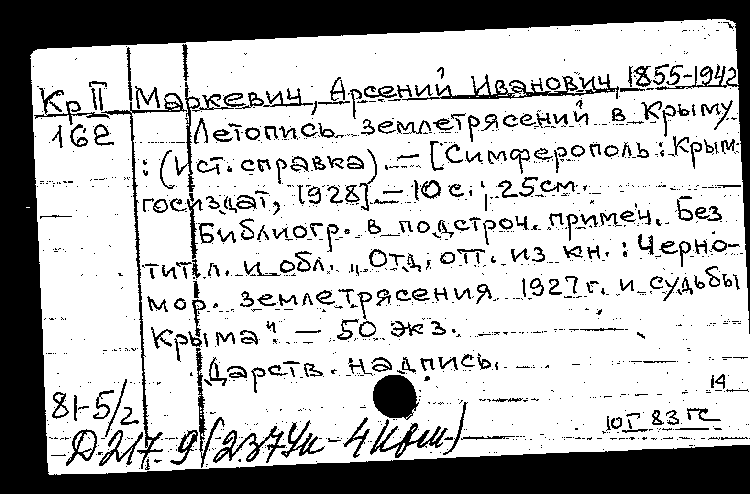 Кр II Маркевич, Арсений Иванович, 1855-1942
162 Летопись землетрясений в Крыму
: (Ист. справка). — [Симферополь: Крым-
госиздат, 1928]. — 10 с.; 25 см.
Библиогр. в подстроч. примеч. Без
тит. л. и обл. „Отд. отт. из кн.: Черно-
мор. землетрясения 1927 г. и судьбы
Крыма". — 50 экз.
Дарств. надпись.
14
81-5/2
ЮГ 83 гс
Д 217.9(237Ук-4Крм)